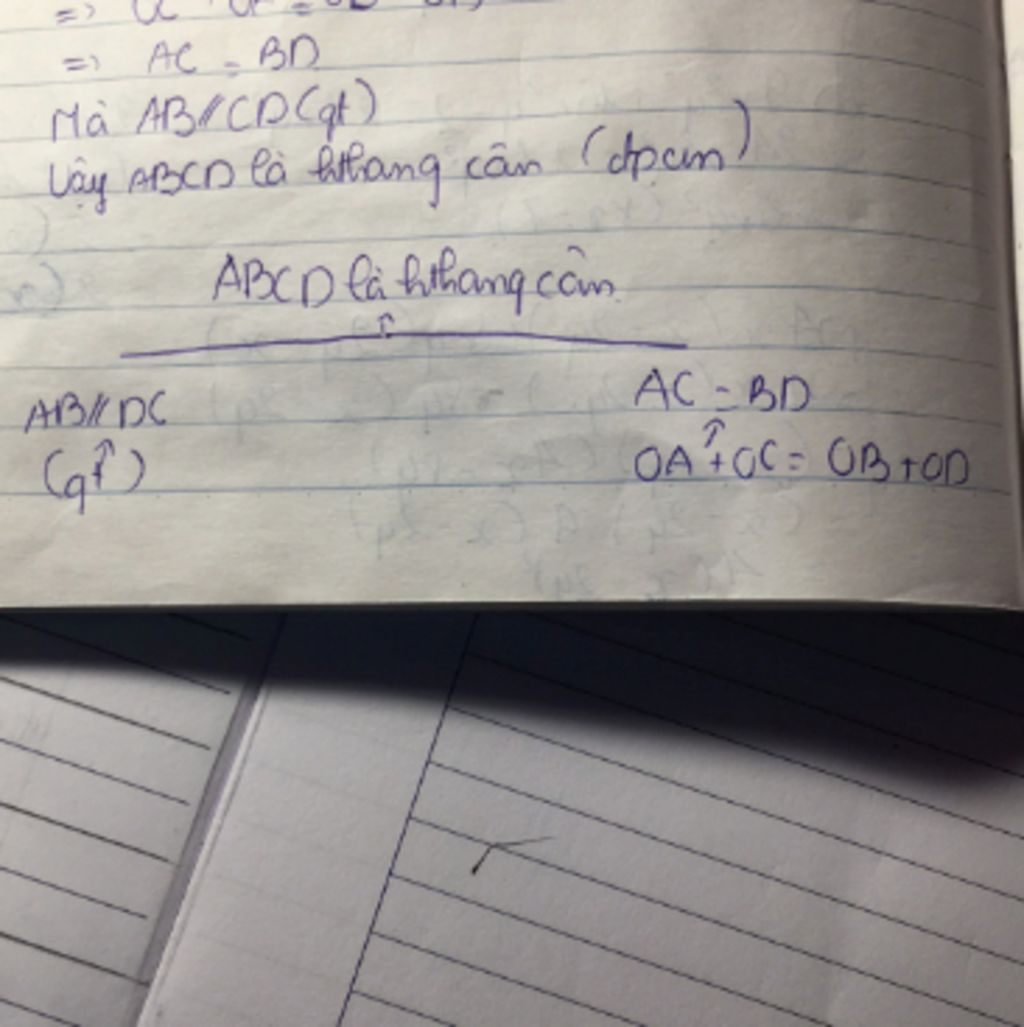 => AC = BD
Mà AB // CD (gt)
Vậy ABCD là hthang cân (đpcm)
ABCD là hthang cân
↑
AB // DC
AC = BD
(gt)
↑
OA + OC = OB + OD